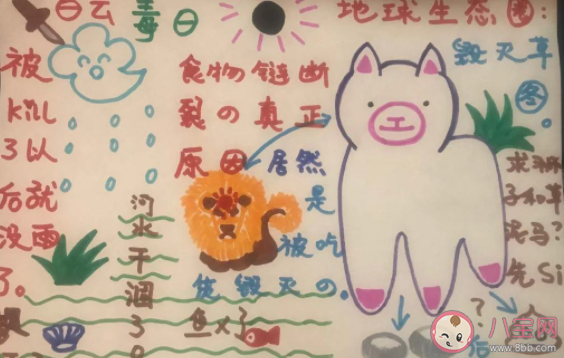 云
地球生态圈:
毁灭草
被
kill
3以
后就
没雨
了。
食物链断
裂の真正
原因居然
是
被吃
货毁灭の。
河水干涸3
鱼x了
子和草
泥马?
先Si
?
八宝网
www.8bb.com